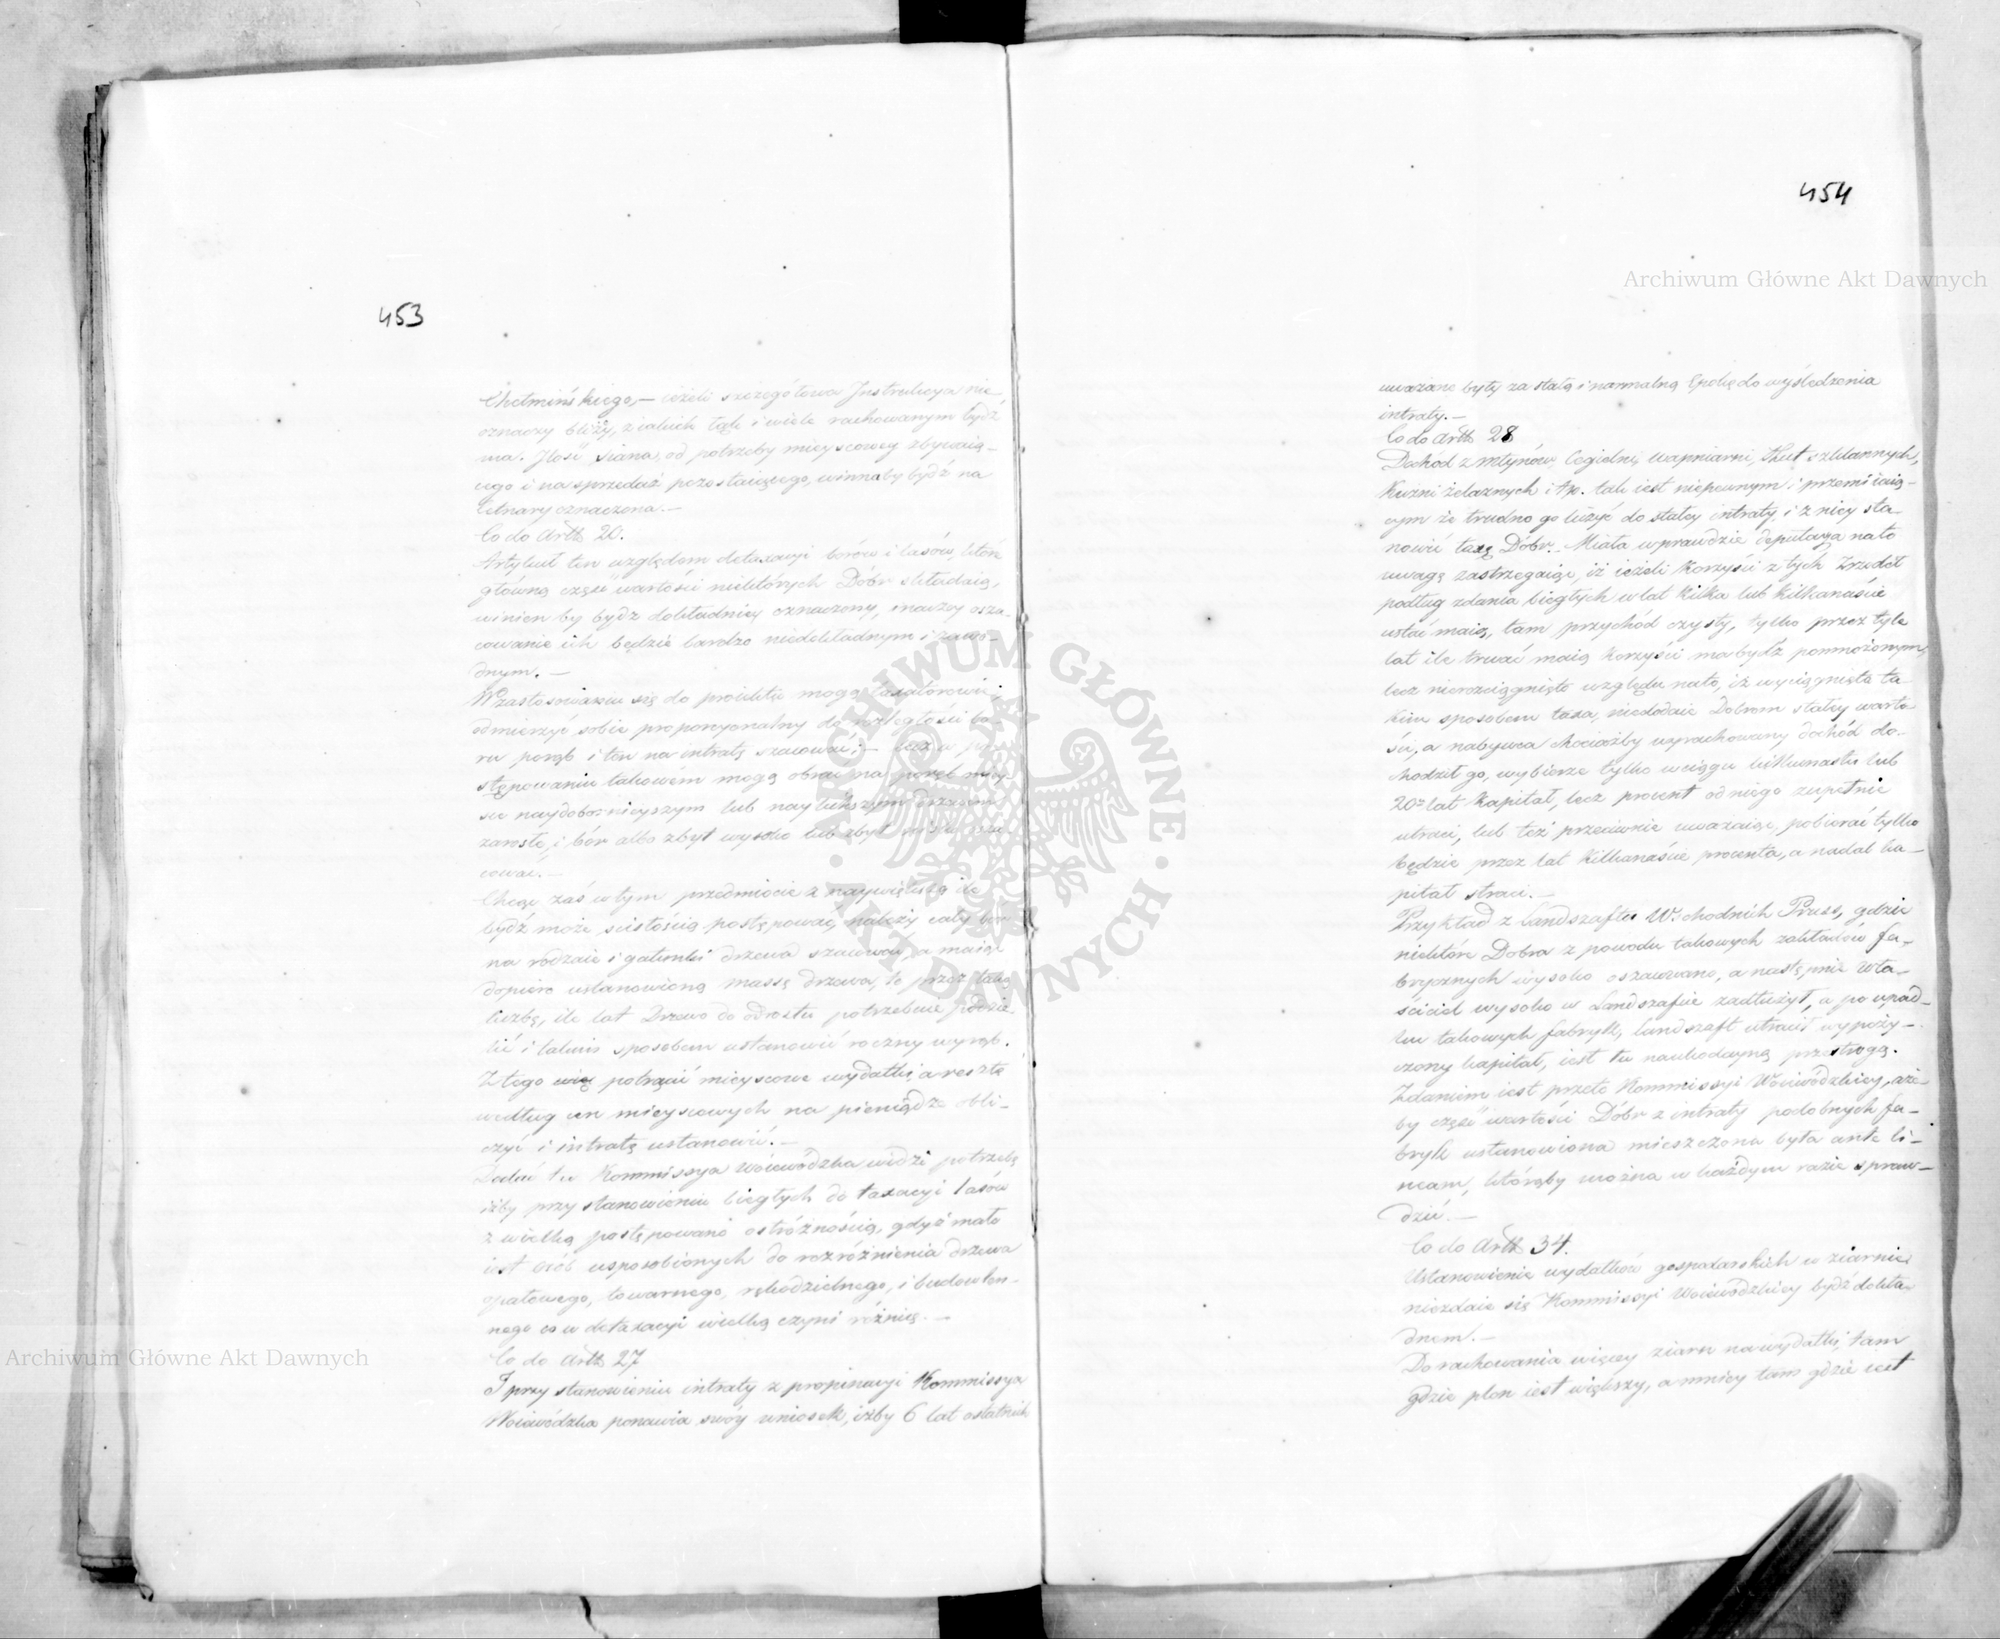 453
Chełmińskiego, — ieżeli szczegółowa Instrukcya nie
oznaczy bliży, z iakich łąk i wiele rachowanym bydź
ma. Ilość siana, od potrzeby mieyscowey zbywaią-
cego i na sprzedaż pozostaiącego, winna by bydź na
Cetnary oznaczona. —
Co do Artł 20.
Artykuł ten względem detaxacyi borów i lasów, które
główną część wartości niektórych Dóbr składaią,
winien by bydź dokładniey oznaczony, inaczey osza-
cowanie ich będzie bardzo niedokładnym i zawo-
dnym. —
W zastosowaniu się do proiektu mogą taxatorowie
odmierzyć sobie proporcyonalny do rozległości bo-
ru poręb i ten na intratę szacować; — lecz w po-
stępowaniu takowém mogą obrać na poręb miey-
sce naydobornieyszym lub naylichszym drzewem
zarosłe, i bór albo zbyt wysoko lub zbyt nisko osza-
cować. —
Chcąc zaś w tym przedmiocie z naywiększą ile
bydź może ścisłością postępować, należy cały bór
na rodzaie i gatunki drzewa szacować, a maiąc
dopiero ustanowioną massę drzewa, te przez taką
liczbę, ile lat Drzewo do odrostu potrzebuie podzie-
lić i takim sposobem ustanowić roczny wyrąb.
Z tego więc potrącić mieyscowe wydatki, a resztę
według cen mieyscowych na pieniądze obli-
czyć i intratę ustanowić. —
Dodać tu Kommissya Woiewódzka widzi potrzebę
iżby przy stanowieniu biegłych do taxacyi lasów
z wielką postępowano ostróżnością, gdyż mało
iest osób usposobionych do rozróżnienia drzewa
opałowego, towarnego, rękodzielnego, i budowlan-
nego co w detaxacyi wielką czyni różnicę. —
Co do Artł 27
I przy stanowieniu intraty z propinacyi Kommissya
Woiewódzka ponawia swóy wniosek, iżby 6 lat ostatnich
454
uważane były za stałą i normalną Epokę do wyśledzenia
intraty. —
Co do Artł 28
Dochod z Młynów, Cegielni, Wapniarni, Hut szklannych,
Kuźni żelaznych i t.p. tak iest niepewnym i przemiiaią-
cym że trudno go liczyć do stałey intraty, i z niey sta-
nowić taxę Dóbr. — Miała wprawdzie deputacya na to
uwagę zastrzegaiąc, iż ieżeli Korzyści z tych Zrzódeł
podług zdania biegłych w lat Kilka lub Kilkanaście
ustać maią, tam przychód czysty, tylko przez tyle
lat ile trwać maią Korzyści ma bydź pomnożonym,
lecz nierozciągnięto względu na to, iż wyciągnięta ta-
kim sposobem taxa, niedodaie Dobrom stałey warto-
ści, a nabywca chociażby wyrachowany dochód do-
chodził go, wybierze tylko w ciągu kilkunastu lub
20tu lat Kapitał, lecz procent od niego zupełnie
utraci, lub też przeciwnie uważaiąc, pobierać tylko
będzie przez lat Kilkanaście procenta, a nadal Ka-
pitał straci. —
Przykład z Landszaftu W. chodnich Pruss, gdzie
niektóre Dobra z powodu takowych zakładów fa-
brycznych wysoko oszacowano, a następnie Wła-
ściciel wysoko w Landszafcie zadłużył, a po upad-
ku takowych fabryk, landszaft utracił wypoży-
czony kapitał, iest tu naukodayną przestrogą.
Zdaniem iest przeto Kommissyi Woiewódzkiey, aże-
by część wartości Dóbr z intraty podobnych fa-
bryk ustanowiona mieszczona była ante li-
neam, którąby można w każdym razie spraw-
dzić. —
Co do Artł 34.
Ustanowienie wydatków gospodarskich w ziarnie
niezdaie się Kommissyi Woiewódzkiey bydź dokła-
dnem. —
Do rachowania więcey ziarn na wydatki, tam
gdzie plon iest większy, a mniey tam gdzie iest
Archiwum Główne Akt Dawnych
Archiwum Główne Akt Dawnych
ARCHIWUM GŁÓWNE AKT DAWNYCH